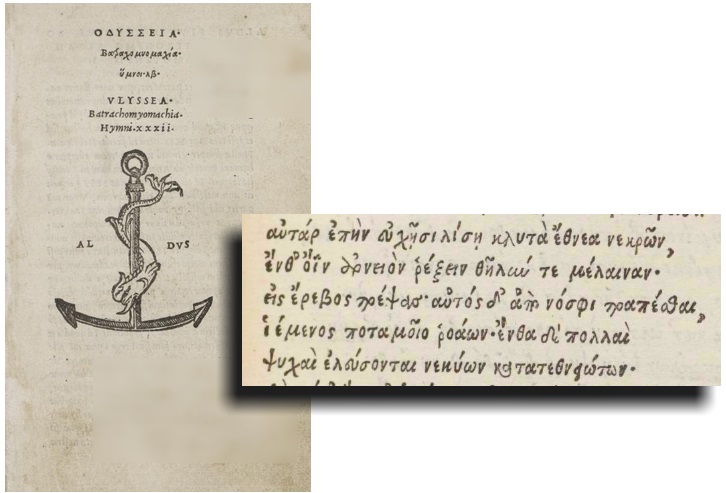 ΟΔΥΣΣΕΙΑ·
Βατραχομυομαχία·
ὕμνοι·λβ·
VLYSSEA·
Batrachomyomachia·
Hymni·xxxii·
AL DVS
αὐτάρ ἐπὴν εὐχῆσι λίση κλυτὰ ἔθνεα νεκρῶν,
ἔνθ' ὄϊν ἀρνειὸν ῥέξειν θῆλιώ τε μέλαιναν·
εἰς ἔρεβος στρέψας· αὐτός δ' ἀπὸ νόσφι τραπέσθαι,
ἱέμενος ποταμοῖο ῥοάων·ἔνθα δὲ πολλαὶ
ψυχαὶ ἐλεύσονται νεκύων κατατεθνηώτων·